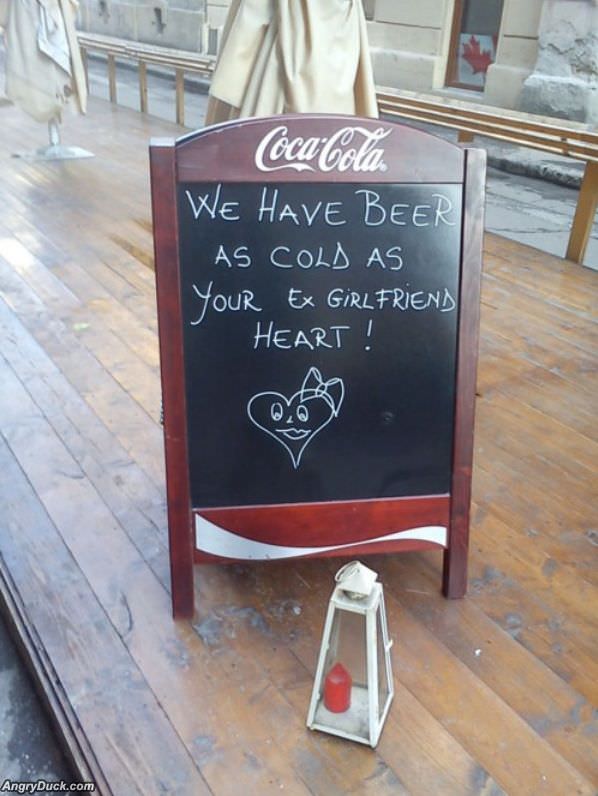 Coca-Cola
WE HAVE BEER
AS COLD AS
YOUR EX GIRLFRIEND
HEART !
AngryDuck.com